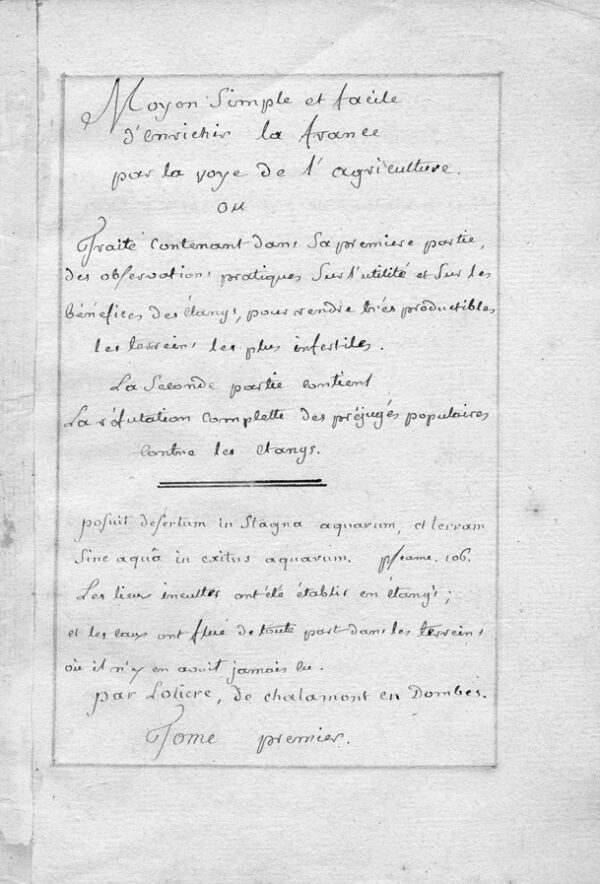 Moyen Simple et facile
d'enrichir la france
par la voye de l'agriculture.
ou
Traité contenant dans Sa premiere partie,
des observations pratiques Sur l'utilité et Sur les
bénéfices des étangs, pour rendre très productibles
les terreins les plus infertiles.
La Seconde partie contient
La réfutation complette des préjugés populaires
contre les étangs.
posuit desertum in Stagna aquarum, et terram
Sine aquâ in exitus aquarum. pseaume. 106.
Les lieux incultes ont été établis en étangs;
et les eaux ont flué de toute part dans les terreins
où il n'y en avoit jamais eu.
par Loliere, de chalamont en Dombes.
Tome premier.